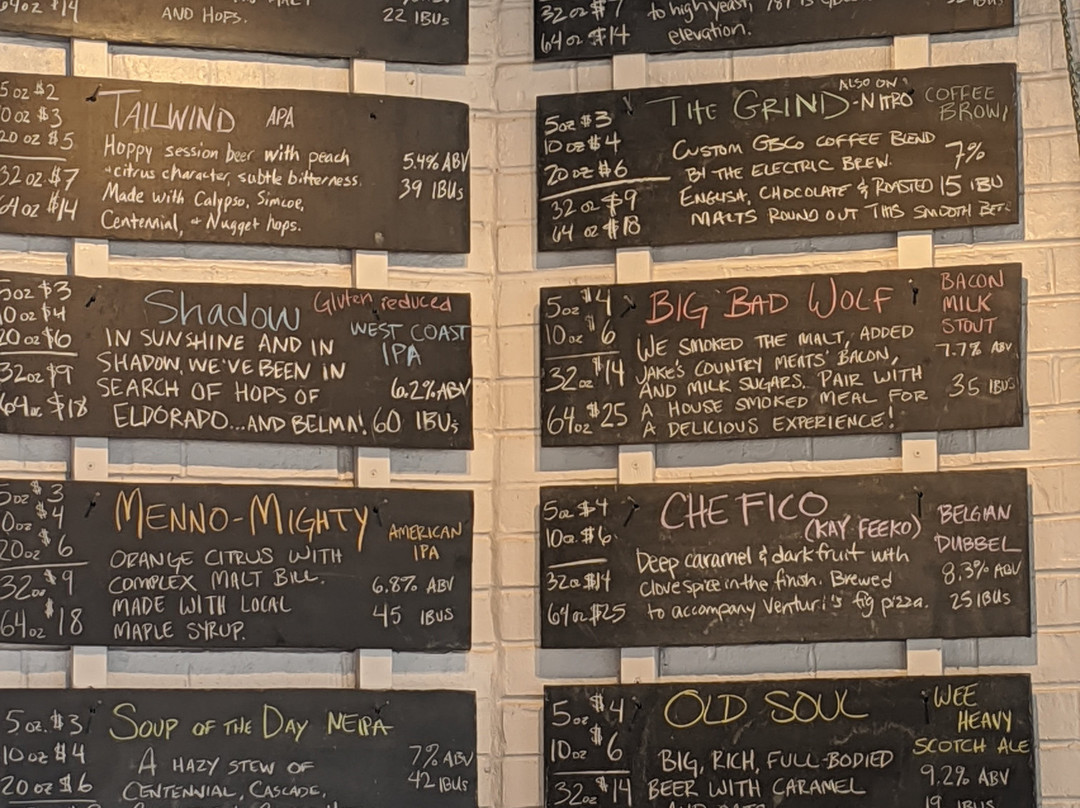 64oz $14
AND HOPS.
22 IBUs
5 oz $2
10 oz $3
20 oz $5
32 oz $7
64 oz $14
TAILWIND APA
Hoppy session beer with peach
+citrus character, subtle bitterness.
Made with Calypso, Simcoe,
Centennial, + Nugget hops.
5.4% ABV
39 IBUs
5oz $3
10oz $4
20oz $6
32oz $9
64oz $18
Shadow Gluten reduced
WEST COAST
IPA
IN SUNSHINE AND IN
SHADOW, WE'VE BEEN IN
SEARCH OF HOPS OF
ELDORADO...AND BELMA!
6.2% ABV
60 IBUs
5oz $3
10oz $4
20oz $6
32oz $9
64oz $18
MENNO-MIGHTY
AMERICAN
IPA
ORANGE CITRUS WITH
COMPLEX MALT BILL.
MADE WITH LOCAL
MAPLE SYRUP.
6.8% ABV
45 IBUs
5oz. $3
10oz $4
20oz $6
SOUP OF THE DAY NEIPA
A HAZY STEW OF
CENTENNIAL, CASCADE,
7% ABV
42 IBUs
32oz $7
64oz $14
to high yeast,
elevation.
5oz $3
10oz $4
20oz $6
32oz $9
64oz $18
THE GRIND
ALSO ON
-NITRO
COFFEE
BROWN
CUSTOM GBCO COFFEE BLEND
BY THE ELECTRIC BREW.
ENGLISH, CHOCOLATE & ROASTED
MALTS ROUND OUT THIS SMOOTH
7%
15 IBU
5oz $4
10oz $6
32oz $14
64oz $25
BIG BAD WOLF
BACON
MILK
STOUT
WE SMOKED THE MALT, ADDED
JAKE'S COUNTRY MEATS' BACON,
AND MILK SUGARS. PAIR WITH
A HOUSE SMOKED MEAL FOR
A DELICIOUS EXPERIENCE!
7.7% ABV
35 IBUs
5oz $4
10oz $6
32oz $14
64oz $25
CHE FICO
(KAY FEEKO)
BELGIAN
DUBBEL
Deep caramel & dark fruit with
clove spice in the finish. Brewed
to accompany Venturi's fig pizza.
8.3% ABV
25 IBUs
5oz $4
10oz $6
32oz $14
OLD SOUL
WEE
HEAVY
SCOTCH ALE
BIG, RICH, FULL-BODIED
BEER WITH CARAMEL
9.2% ABV